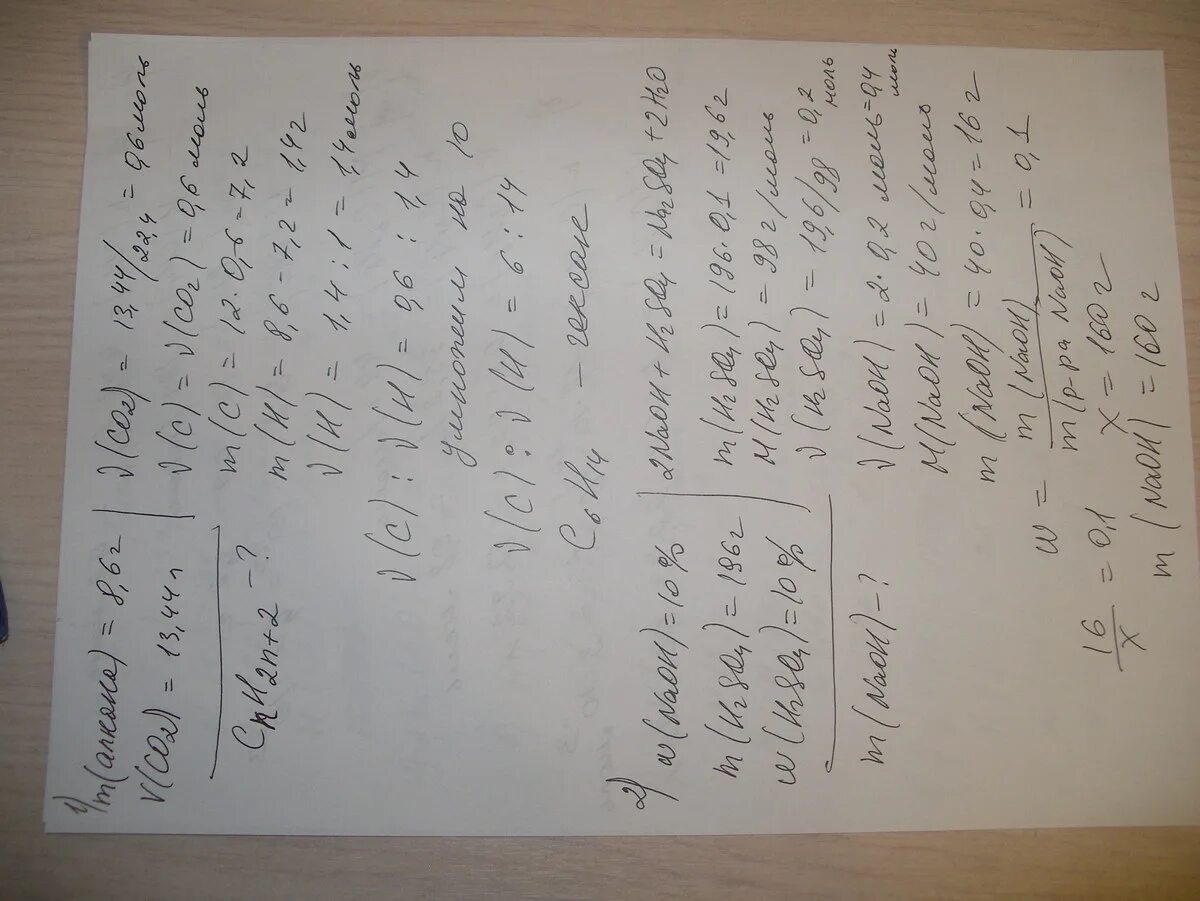 1) m(алкана) = 8,6г
V(CO2) = 13,44л
CnH2n+2 - ?
ν(CO2) = 13,44/22,4 = 0,6моль
ν(C) = ν(CO2) = 0,6 моль
m(C) = 12·0,6 = 7,2
m(H) = 8,6 - 7,2 = 1,4г
ν(H) = 1,4 : 1 = 1,4моль
ν(C) : ν(H) = 0,6 : 1,4
умножим на 10
ν(C) : ν(H) = 6 : 14
C6H14 - гексан
2) w(NaOH) = 10%
m(H2SO4) = 196г
w(H2SO4) = 10%
m(NaOH) - ?
2NaOH + H2SO4 = Na2SO4 + 2H2O
m(H2SO4) = 196·0,1 = 19,6г
M(H2SO4) = 98г/моль
ν(H2SO4) = 19,6/98 = 0,2 моль
ν(NaOH) = 2·0,2 моль = 0,4 моль
M(NaOH) = 40г/моль
m(NaOH) = 40·0,4 = 16г
w = m(NaOH) / m(р-ра NaOH) = 0,1
16/x = 0,1 x = 160г
m(NaOH) = 160г